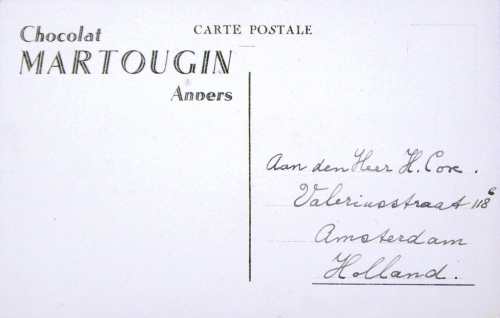 Chocolat
MARTOUGIN
Anvers
CARTE POSTALE
Aan den Heer H. Cox.
Valeriusstraat 118⁶
Amsterdam
Holland.